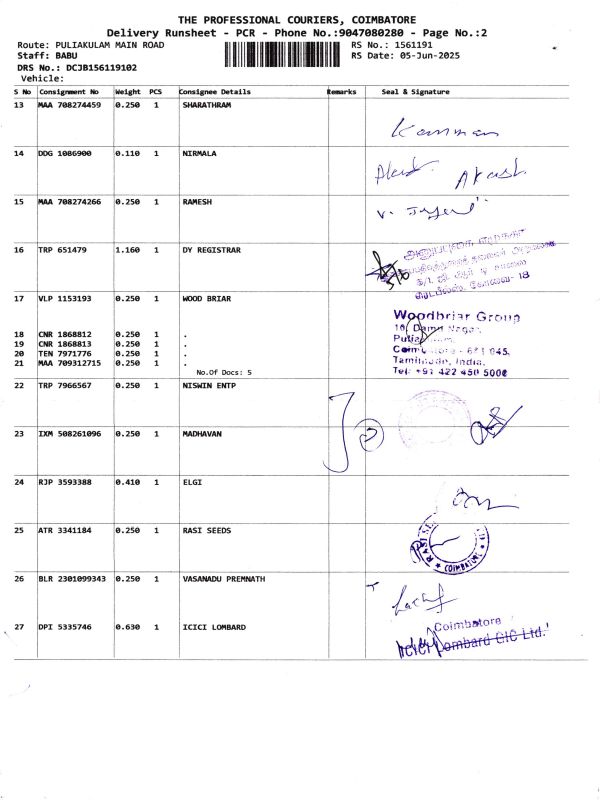 THE PROFESSIONAL COURIERS, COIMBATORE
Delivery Runsheet - PCR - Phone No.:9047080280 - Page No.:2
Route: PULIAKULAM MAIN ROAD RS No.: 1561191
Staff: BABU RS Date: 05-Jun-2025
DRS No.: DCJB156119102
Vehicle:
S No Consignment No Weight PCS Consignee Details Remarks Seal & Signature
13 MAA 708274459 0.250 1 SHARATHRAM
Kamman
14 DDG 1086900 0.110 1 NIRMALA
Akash
15 MAA 708274266 0.250 1 RAMESH
V.
16 TRP 651479 1.160 1 DY REGISTRAR
17 VLP 1153193 0.250 1 WOOD BRIAR
Woodbriar Group
18 CNR 1868812 0.250 1 .
19 CNR 1868813 0.250 1 .
20 TEN 7971776 0.250 1 .
Coimbatore - 641 045.
21 MAA 709312715 0.250 1 .
Tamilnadu, India.
No.Of Docs: 5
Tel: +91 422 450 5006
22 TRP 7966567 0.250 1 NISWIN ENTP
23 IXM 508261096 0.250 1 MADHAVAN
24 RJP 3593388 0.410 1 ELGI
25 ATR 3341184 0.250 1 RASI SEEDS
COIMBATORE
26 BLR 2301099343 0.250 1 VASANADU PREMNATH
27 DPI 5335746 0.630 1 ICICI LOMBARD
Coimbatore
ICICI Lombard GIC Ltd.